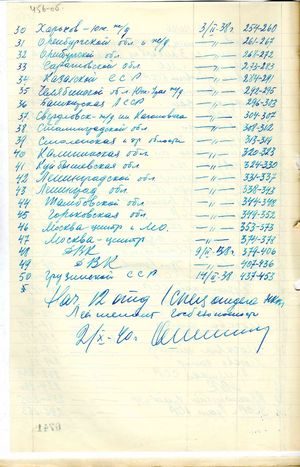 30 Харьков - Юж. ж/д 3/II-38г. 254-260
31 Оренбургской обл. и ж/д —"— 261-267
32 Оренбургской обл. —"— 268-272
33 Саратовской обл —"— 273-283
34 Казахской ССР —"— 284-291
35 Челябинской обл. Юж. Урал ж/д —"— 292-295
36 Башкирская АССР —"— 296-303
37 Свердловск - ж/д им Кагановича —"— 304-307
38 Сталинградской обл —"— 308-312
39 Смоленская и др области —"— 313-319
40 Калининская обл —"— 320-323
41 Куйбышевская обл —"— 324-330
42 Ленинградской обл —"— 331-337
43 Ленинград обл. —"— 338-343
44 Тамбовской обл —"— 344-348
45 Горьковская обл —"— 349-352
46 Москва-центр и МО. —"— 353-373
47 Москва-центр —"— 374-378
48 ДВК 9/II-38г. 379-406
49 ДВК —"— 407-436
50 Грузинской ССР 14/II 38 437-453
Нач. 12 отд 1 Спец отдела НКВД
Лейтенант госбезопасности
2/IX-40г.